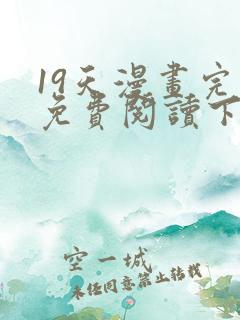 19天漫畫完
免費閱讀下
空一城
未經同意禁止轉載